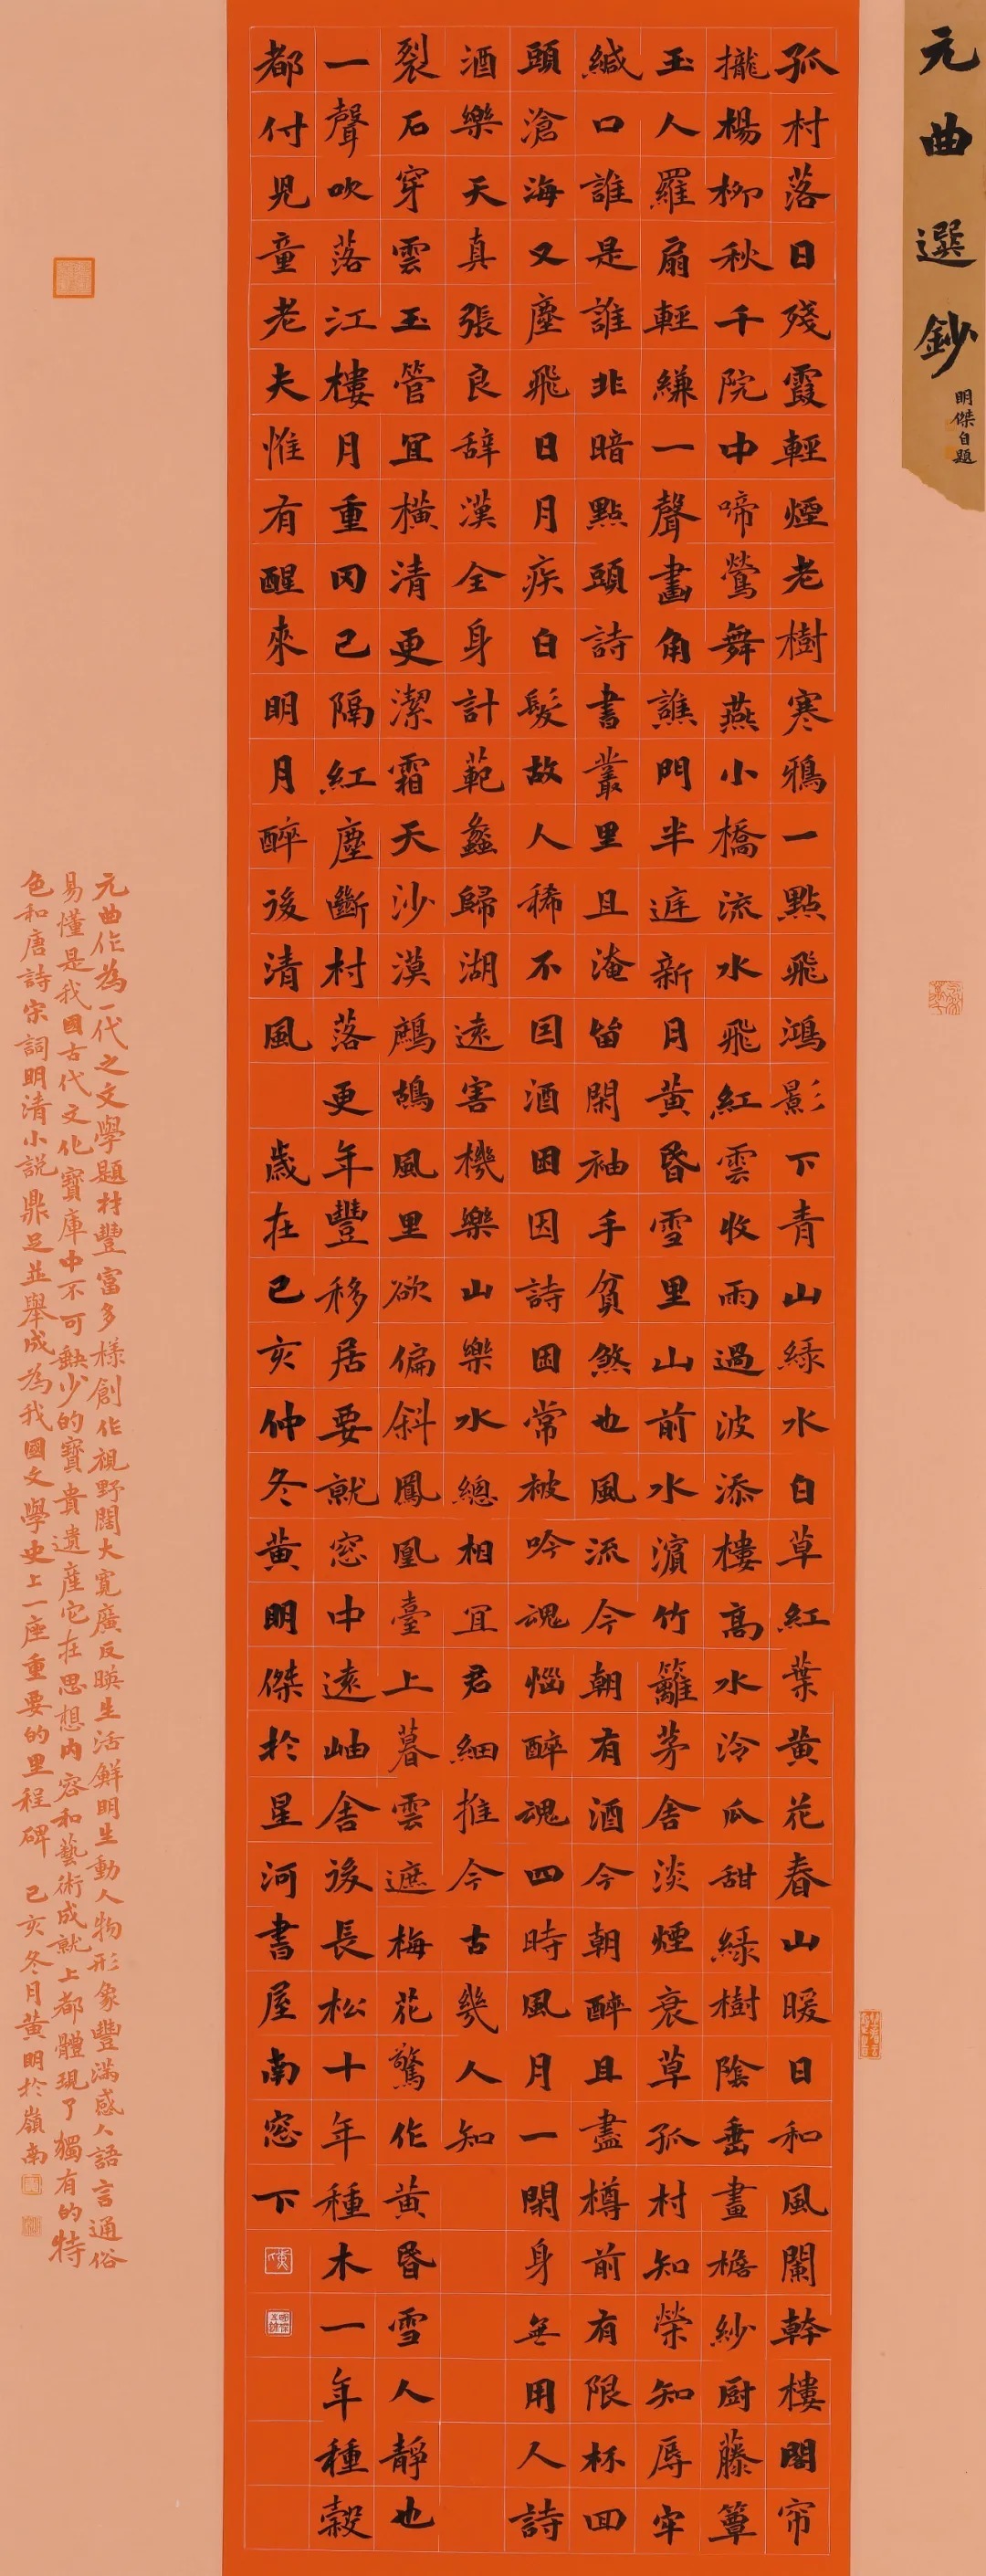 元曲選鈔
明傑自題
孤村落日殘霞輕煙老樹寒鴉一點飛鴻影下青山綠水白草紅葉黃花春山暖日和風闌幹樓閣帘
攏楊柳秋千院中啼鶯舞燕小橋流水飛紅雲收雨過波添樓高水冷瓜甜綠樹陰垂畫檐紗厨藤簟
玉人羅扇輕縑一聲畫角譙門半庭新月黃昏雪里山前水濱竹籬茅舍淡煙衰草孤村知榮知辱牢
緘口誰是誰非暗點頭詩書叢里且淹留閑袖手貧煞也風流今朝有酒今朝醉且盡樽前有限杯回
頭滄海又塵飛日月疾白髮故人稀不因酒困因詩困常被吟魂惱醉魂四時風月一閑身無用人詩
酒樂天真張良辭漢全身計範蠡歸湖遠害機樂山樂水總相宜君細推今古幾人知
裂石穿雲玉管宜橫清更潔霜天沙漠鷓鴣風里欲偏斜鳳凰臺上暮雲遮梅花驚作黃昏雪人靜也
一聲吹落江樓月重岡已隔紅塵斷村落更年豐移居要就窓中遠岫舍後長松十年種木一年種穀
都付兒童老夫惟有醒來明月醉後清風 歲在己亥仲冬黃明傑於星河書屋南窓下
元曲作為一代之文學題材豐富多樣創作視野闊大寬廣反映生活鮮明生動人物形象豐滿感人語言通俗
易懂是我國古代文化寶庫中不可缺少的寶貴遺產它在思想內容和藝術成就上都體現了獨有的特
色和唐詩宋詞明清小說鼎足並舉成為我國文學史上一座重要的里程碑 己亥冬月黃明於嶺南